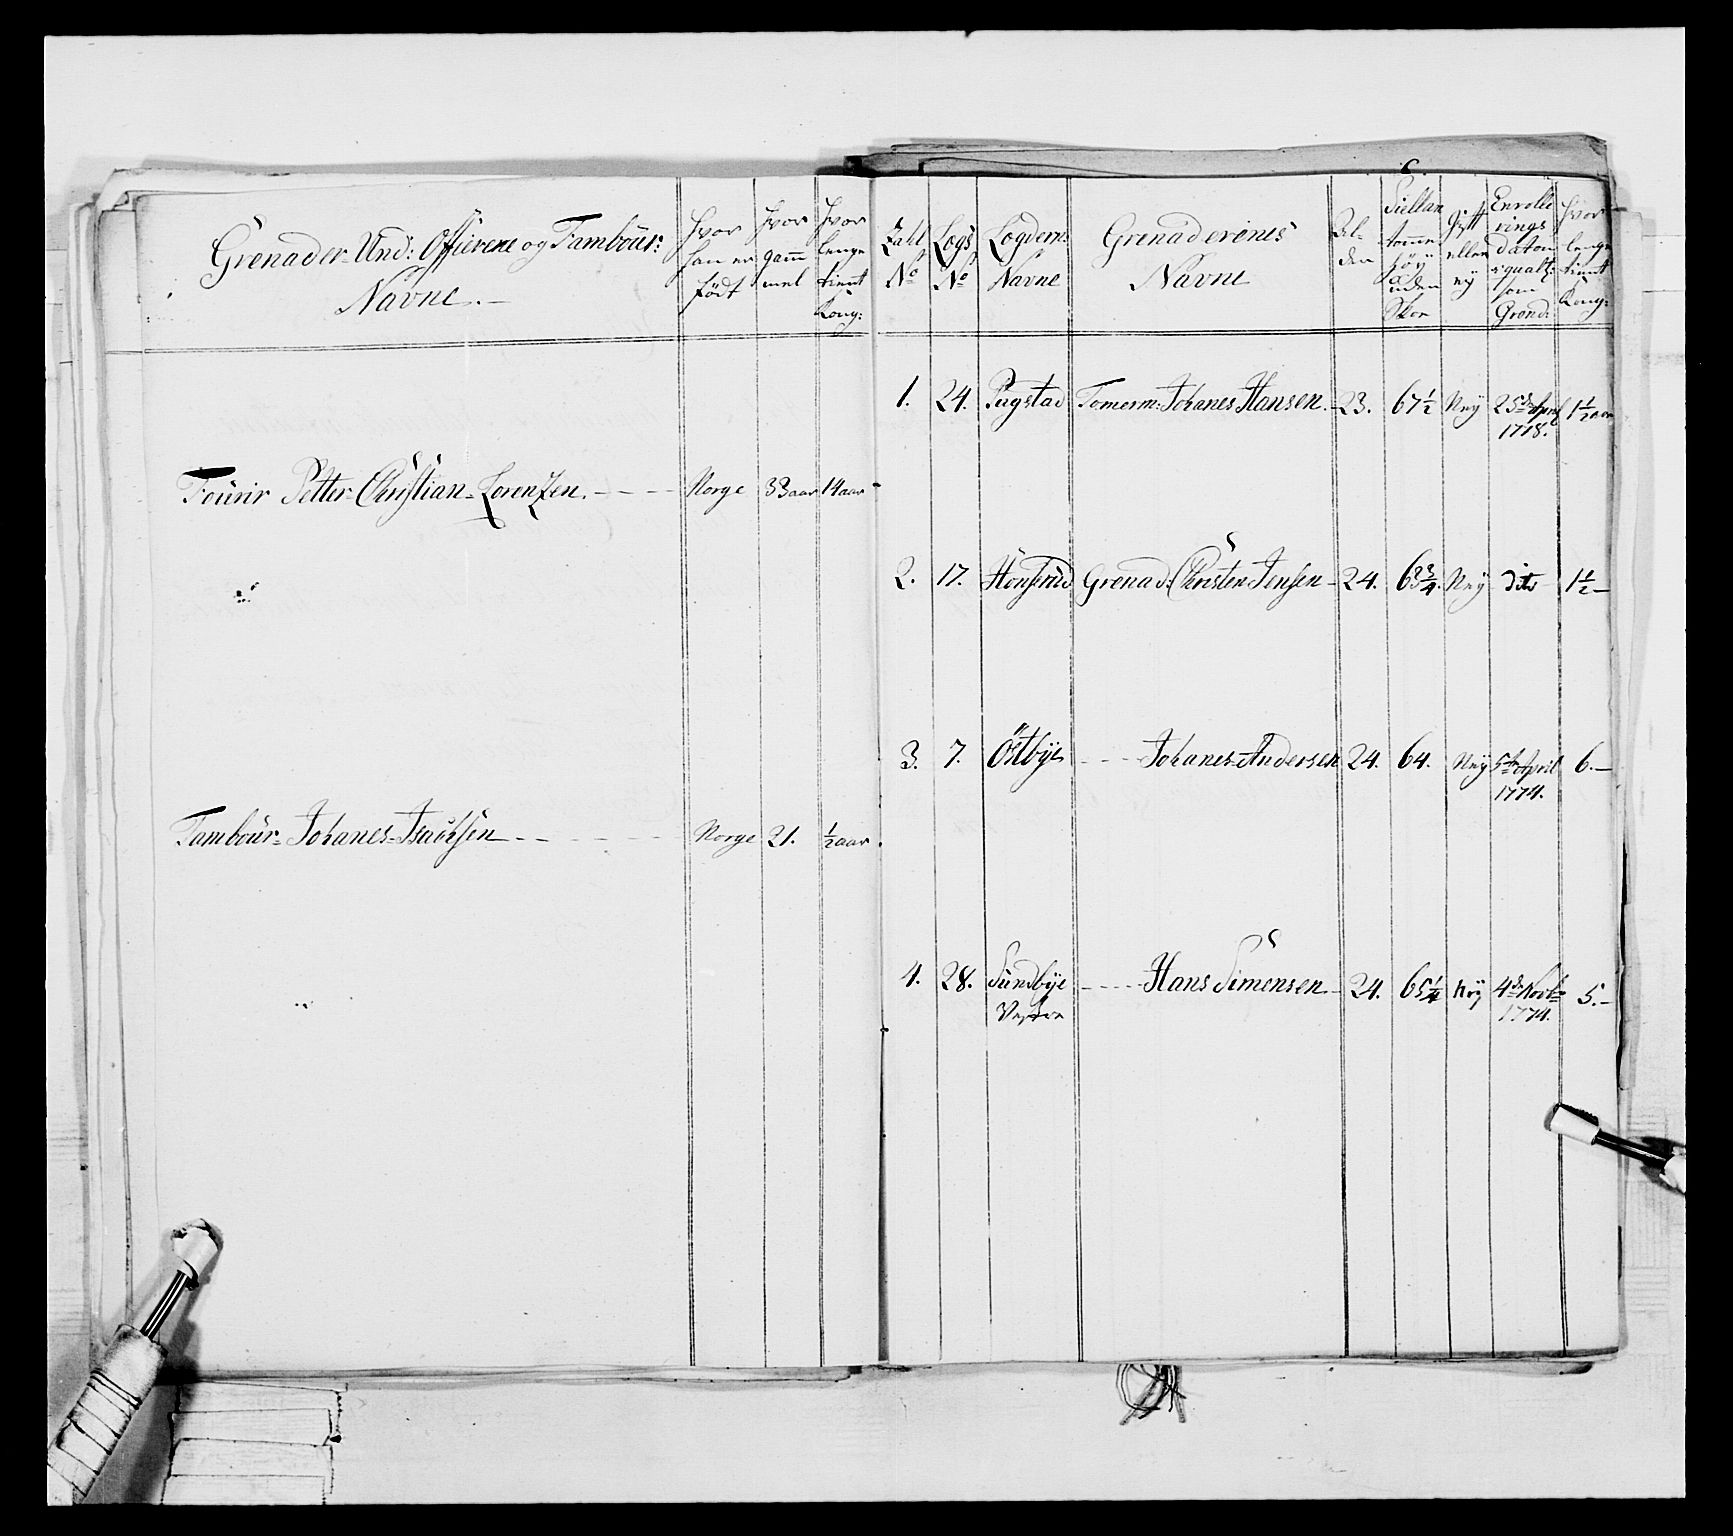 Grenader-Und: Officerene og Tambour:
Navne.
Hvor han er født
Hvor gammel
Hvor lenge tient Kong:
Fourir Petter Christian Lorentzen. - - - - Norge 33 aar 14 aar
Tambour Johanes Isachsen - - - - - Norge 21. 1/2 aar.
Tall No
Logs No
Logdern: Navne
Grenaderenes Navne
Al-den
Siellan tomme høÿ uden Skoe
Gift eller eÿ
Enrolle rings datom qualt: som Grend:
Hvor lenge tient Kong:
1. 24. Pugstad Tomerm: Johanes Hansen. - 23. 67 1/2 Neÿ 25de April 1778. 1 1/2 aar
2. 17. Hønserud Grenad: Christen Jensen - 24. 63 3/4. Neÿ dito 1 1/2 -
3. 7. Østbÿe - - - Johanes Andersen 24. 64. Neÿ 5te April 1774. 6. -
4. 28. Sundbÿe Vestre - - - - Hans Simensen - 24. 65 1/4 Neÿ 4de Novbr 1774. 5. -